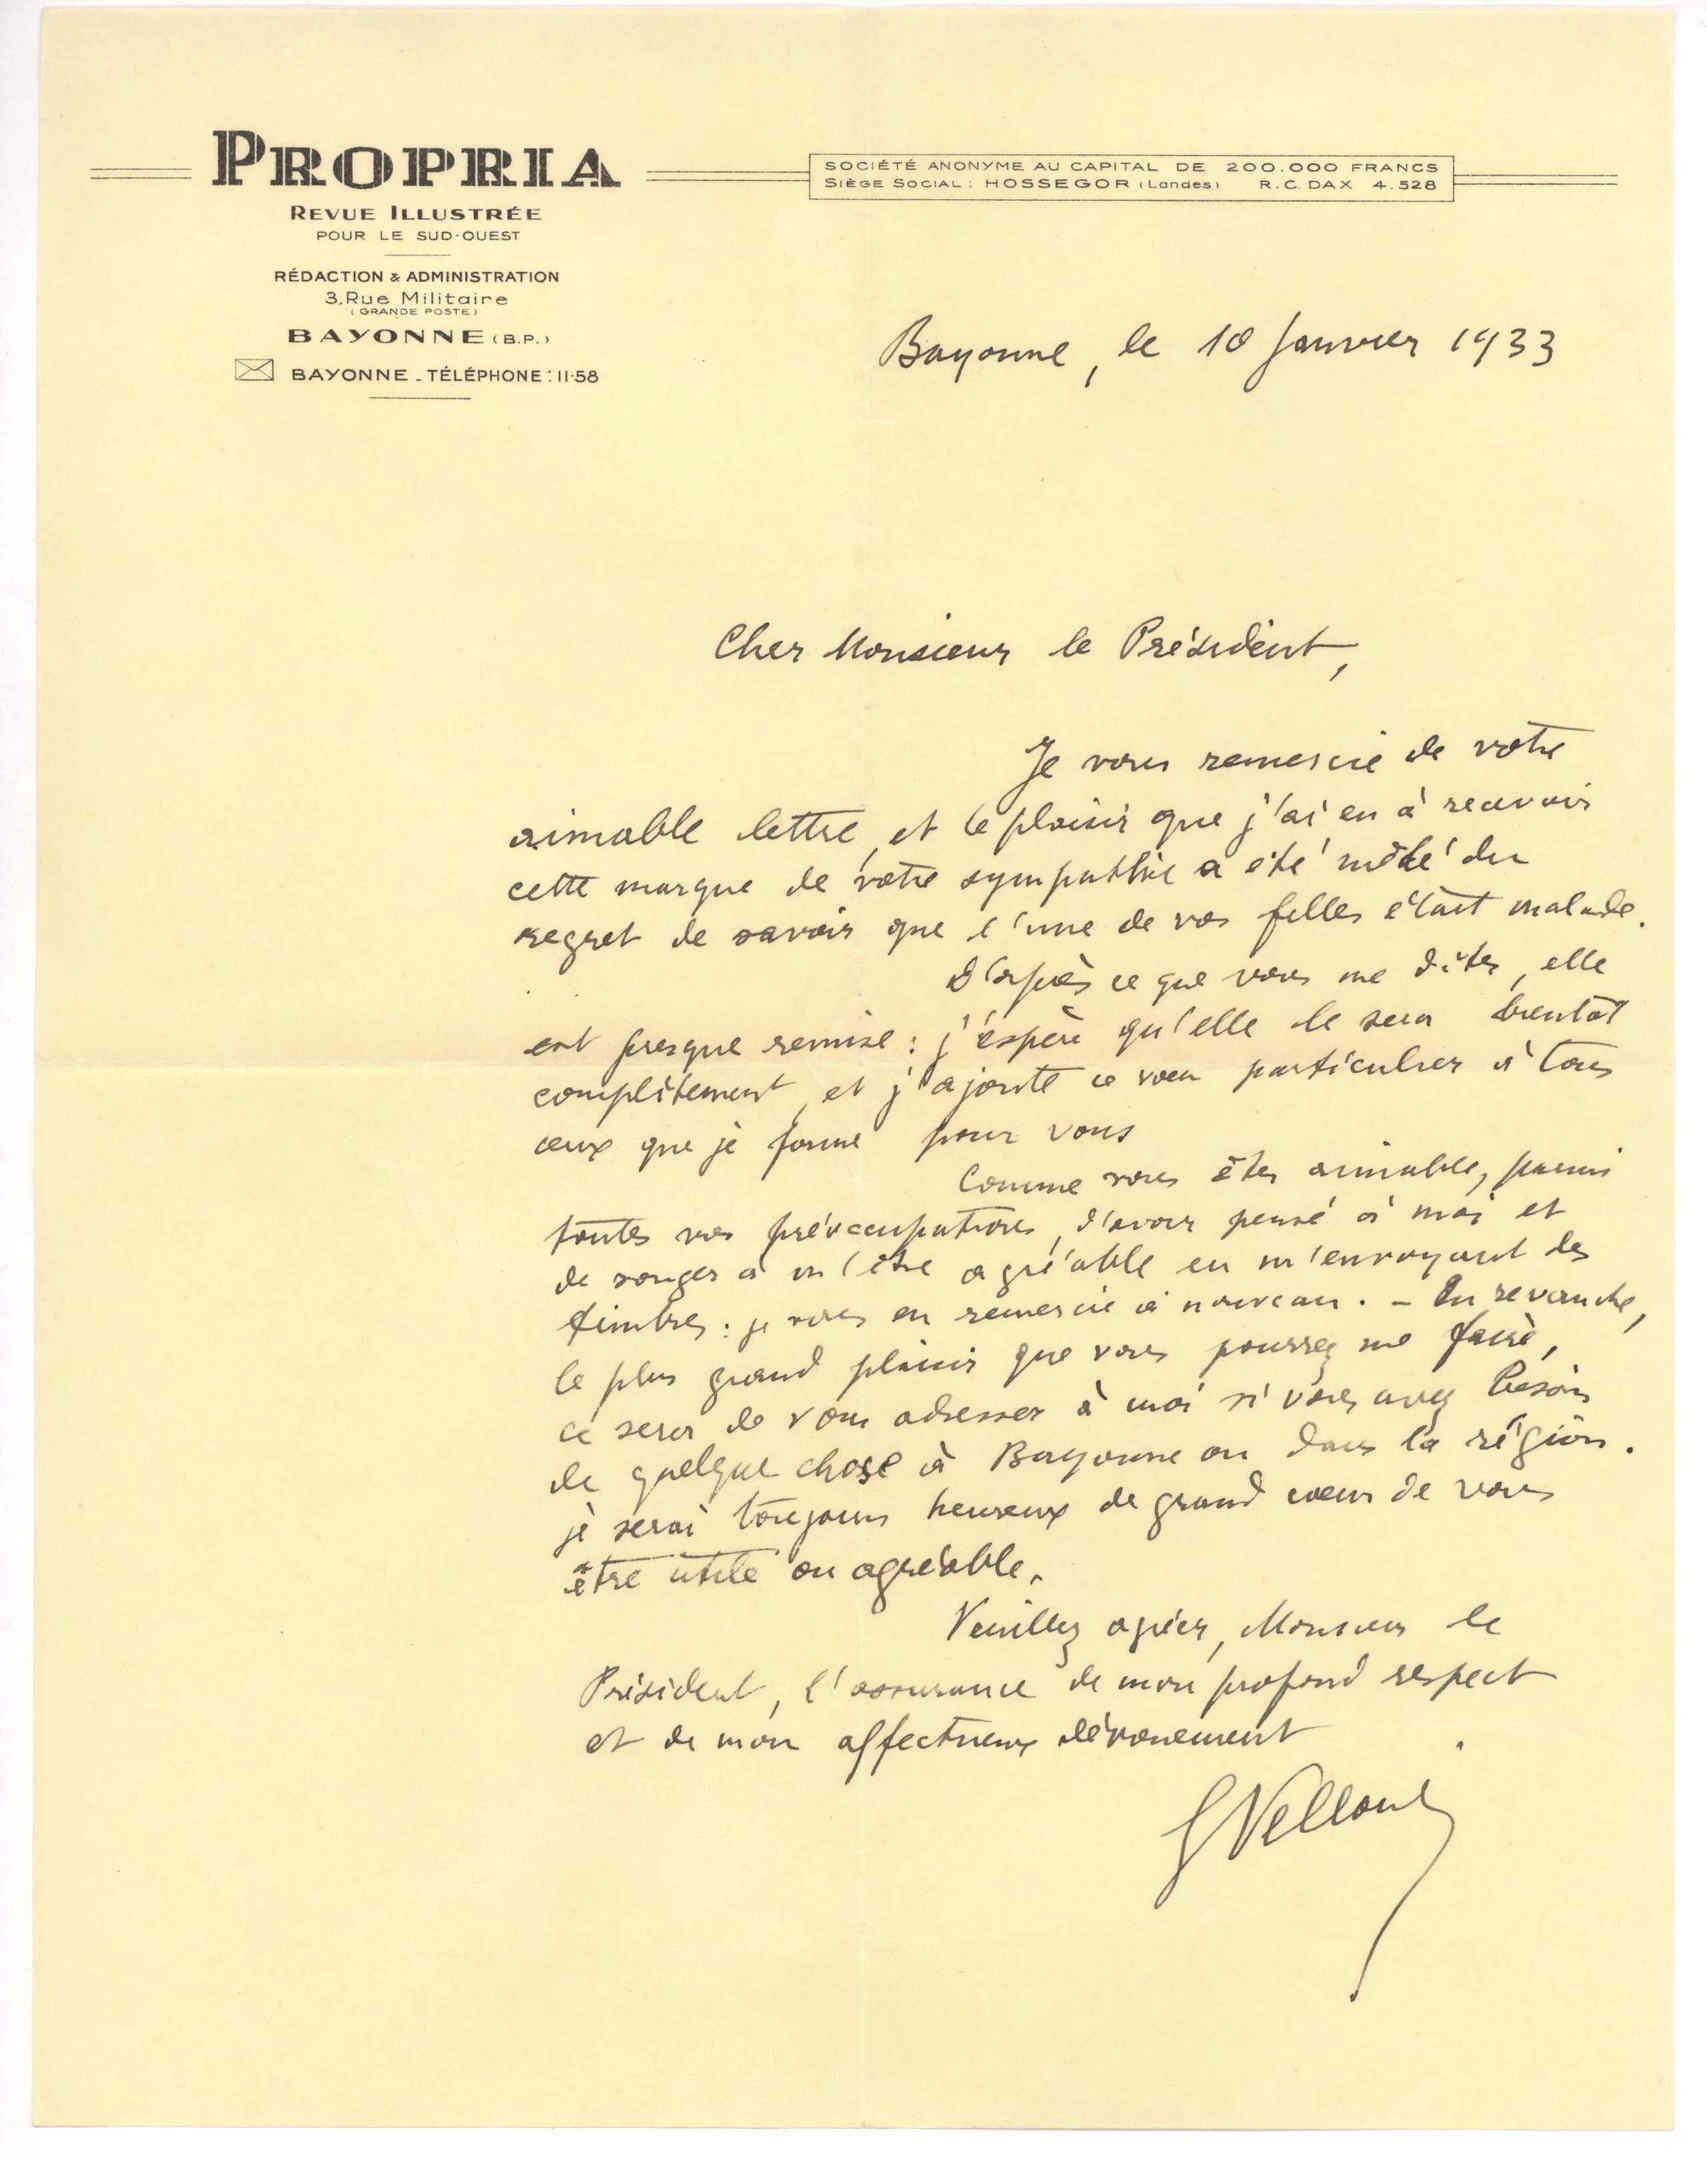 PROPRIA
REVUE ILLUSTRÉE
POUR LE SUD-OUEST
RÉDACTION & ADMINISTRATION
3, Rue Militaire
(GRANDE POSTE)
BAYONNE (B.P.)
BAYONNE - TÉLÉPHONE : 11-58
SOCIÉTÉ ANONYME AU CAPITAL DE 200.000 FRANCS
SIÈGE SOCIAL : HOSSEGOR (Landes) R.C. DAX 4.528
Bayonne, le 10 Janvier 1933
Cher Monsieur le Président,
Je vous remercie de votre
aimable lettre, et le plaisir que j'ai eu à recevoir
cette marque de votre sympathie a été mêlé du
regret de savoir que l'une de vos filles était malade.
D'après ce que vous me dites, elle
est presque remise : j'espère qu'elle le sera bientôt
complètement, et j'ajoute ce voeu particulier à tous
ceux que je forme pour vous
Comme vous êtes aimable, parmi
toutes vos préoccupations, d'avoir pensé à moi et
de songer à m'être agréable en m'envoyant des
timbres : je vous en remercie à nouveau. - En revanche,
le plus grand plaisir que vous pourrez me faire,
ce sera de vous adresser à moi si vous avez besoin
de quelque chose à Bayonne ou dans la région.
je serai toujours heureux de grand coeur de vous
être utile ou agréable.
Veuillez agréer, Monsieur le
Président, l'assurance de mon profond respect
et de mon affectueux dévouement